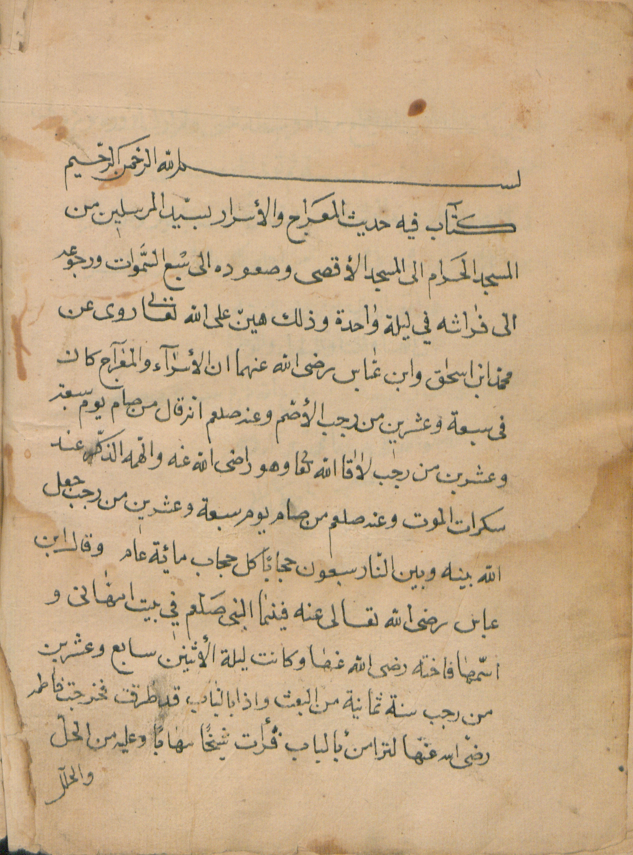 بسم الله الرحمن الرحيم
كتاب فيه حديث المعراج والأسرار لسيد المرسلين من
المسجد الحرام الى المسجد الأقصى وصعوده الى سبع السموات ورجوعه
الى فراشه في ليلة واحدة وذلك هين على الله تعالى روى عن
محمد ابن اسحاق وابن عباس رضى الله عنهما ان الأسراء والمعراج كان
فى سبعة وعشرين من رجب الأصم وعند صلعم انه قال من صام يوم سبعة
وعشرين من رجب لاقا الله تعا وهو راضى الله عنه والهمه الذكر عند
سكرات الموت وعند صلعم من صام يوم سبعة وعشرين من رجب جعل
الله بينه وبين النار سبعون حجابا كل حجاب مائة عام وقال ابن
عباس رضى الله تعالى عنه فبينما النبى صلعم في بيت امهانى و
اسمها فاخته رضى الله عنها وكانت ليلة الأثنين سابع وعشرين
من رجب سنة ثمانية من البعث واذا بالباب قد طرقت فخرجت فاطمه
رضى الله عنها لترا من بالباب فرأت شيخا مهابا وعليه من الحلى
والحلل